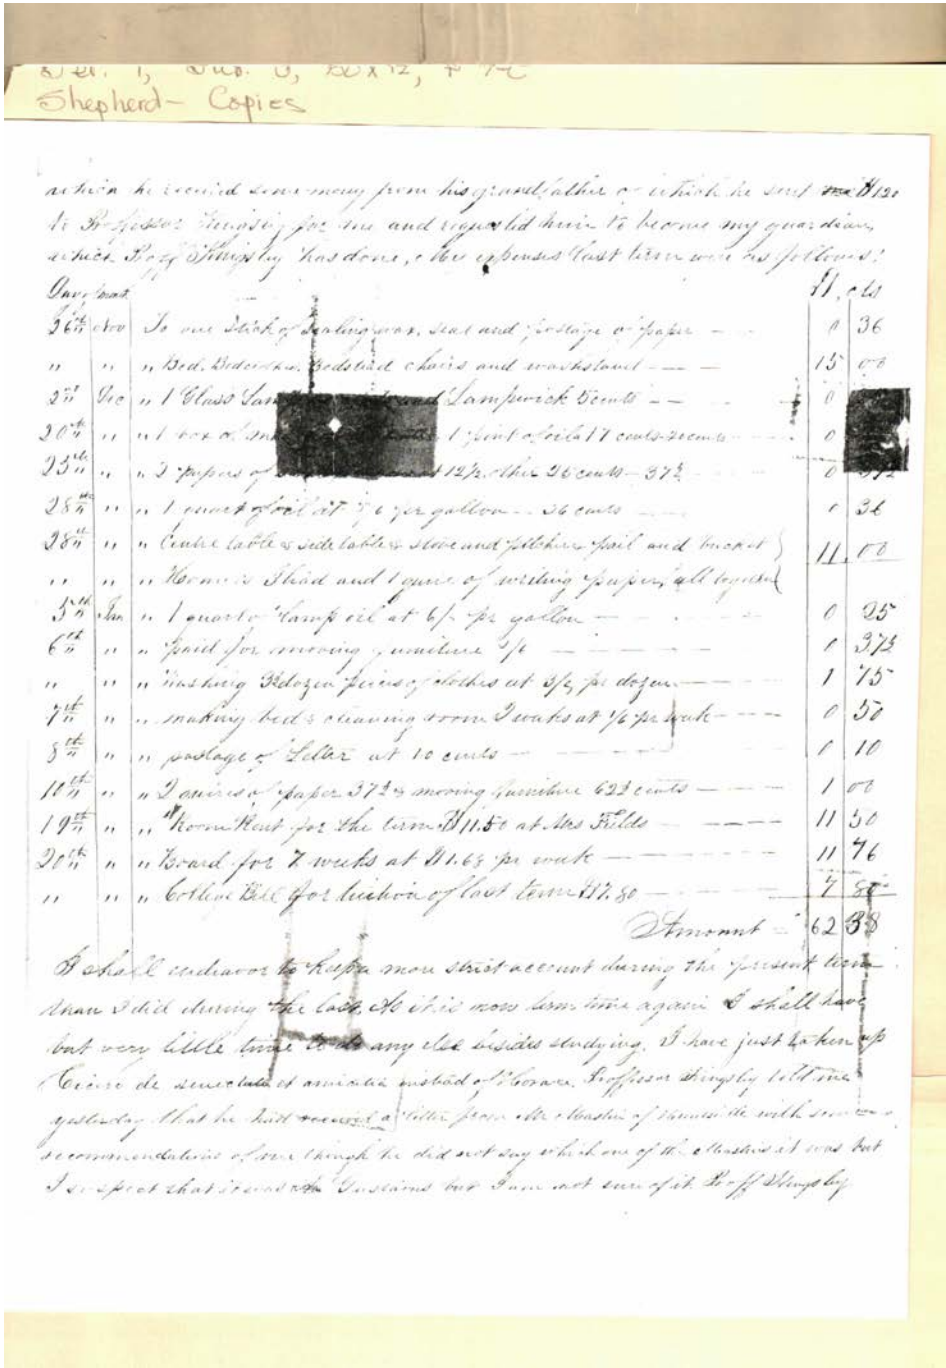 Shepherd - Copies
which he received some money from his grandfather of which he sent $120
to Professor Kingsley for me and requested him to become my guardian,
which Proff Kingsley has done, My expenses last term were as follows:
$ , cts
26th Nov To one Stick of Sealing wax, seal and postage of paper 0 36
" " " Bed. Bedclothes. Bedstead chairs and washstand 15 00
2nd Dec " 1 Glass Lam Lampwick 5 cents 0
20th " " 1 box of 1 pint of oil at 17 cents 0
25th " " 2 papers of 12½ other 25 cents - 37½ 0 37½
28th " " 1 quart of oil at per gallon - 36 cents 0 36
28th " " Centre table & side table & stove and pitcher pail and bucket } 11.00
" " " Homer's Iliad and 1 quire of writing paper, all together
5th Jan " 1 quart of lamp oil at 6/- pr gallon 0 25
6th " " paid for moving furniture 0 37½
" " " Washing 3½ dozen pieces of clothes at 3/ pr dozen 1 75
7th " " making bed & cleaning room 2 weeks at 1/6 pr week 0 50
8th " " postage of Letter at 10 cents 0 10
10th " " 2 quires of paper 37½ & moving furniture 62½ cents 1 00
19th " " Room Rent for the term $11.50 at Mrs Fields 11 50
20th " " Board for 7 weeks at $1.68 pr week 11 76
" " " College Bill for tuition of last term $7.80 7 80
Amount = 62 38
I shall endeavor to keep a more strict account during the present term
than I did during the last. As it is now term time again I shall have
but very little time to do any else besides studying. I have just taken up
Cicero de senectute et amicitia instead of Horace. Proffesor Kingsley told me
yesterday that he had received a letter from Mr Master of with some
recommendations of me though he did not say which one of the Masters it was but
I suspect that it was Gustavus but I am not sure of it. Proff Kingsley